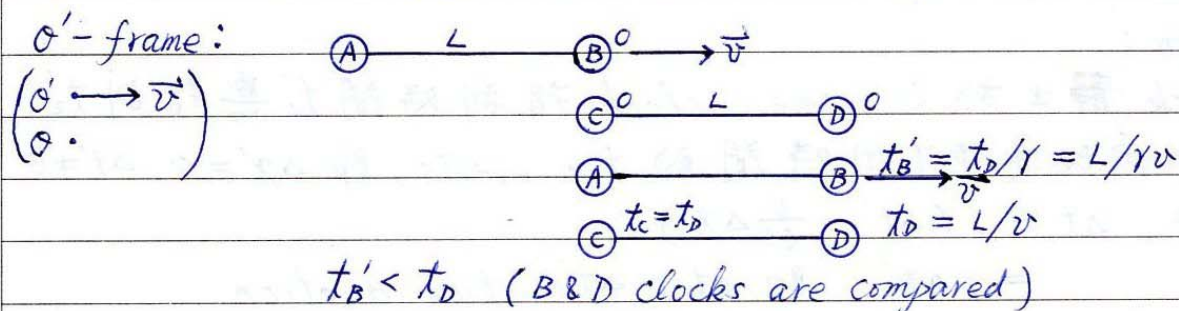 O'-frame:
A L B O v⃗
(O' → v⃗
O ·)
C O L D O
A B t'_B = t_D/γ = L/γv
v⃗
C t_C = t_D D t_D = L/v
t'_B < t_D (B & D clocks are compared)